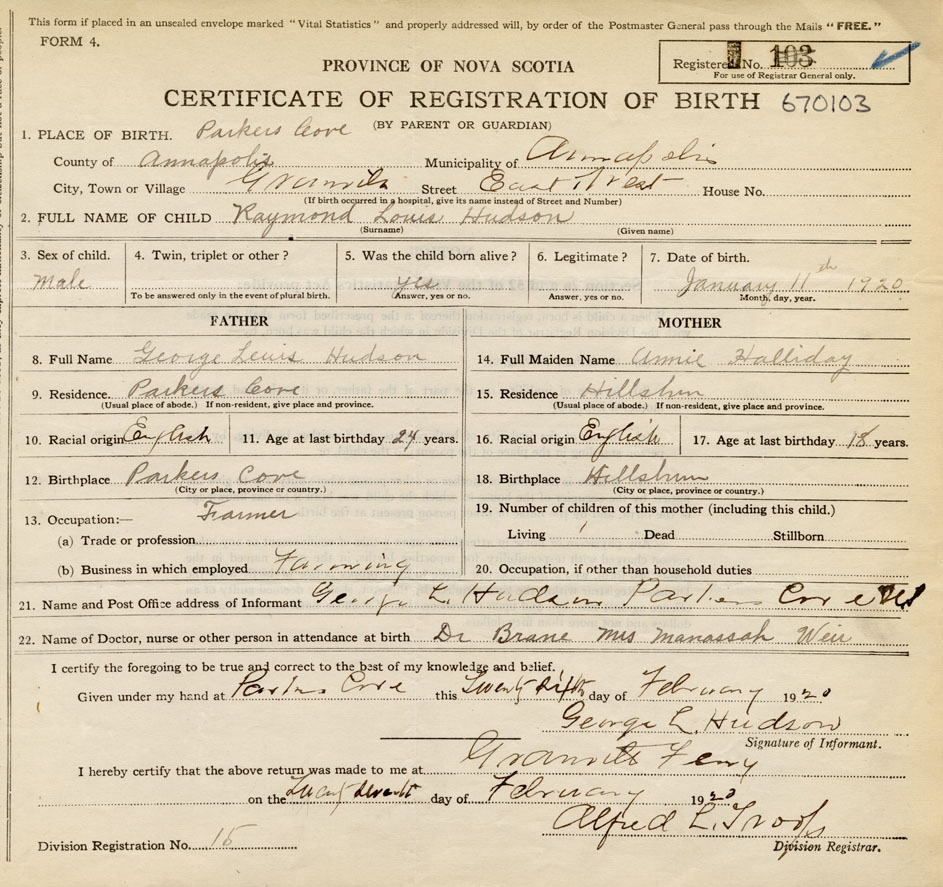 This form if placed in an unsealed envelope marked "Vital Statistics" and properly addressed will, by order of the Postmaster General pass through the Mails "FREE."
FORM 4.
Registered No. 103
For use of Registrar General only.
PROVINCE OF NOVA SCOTIA
CERTIFICATE OF REGISTRATION OF BIRTH 670103
(BY PARENT OR GUARDIAN)
1. PLACE OF BIRTH. Parkers Cove
County of Annapolis Municipality of Annapolis
City, Town or Village Granville Street East West House No.
(If birth occurred in a hospital, give its name instead of Street and Number)
2. FULL NAME OF CHILD Raymond Louis Hudson
(Surname) (Given name)
3. Sex of child. Male
4. Twin, triplet or other?
To be answered only in the event of plural birth.
5. Was the child born alive? yes
Answer, yes or no.
6. Legitimate?
Answer, yes or no.
7. Date of birth. January 11th 1920
Month, day, year.
FATHER
8. Full Name George Lewis Hudson
9. Residence. Parkers Cove
(Usual place of abode.) If non-resident, give place and province.
10. Racial origin English 11. Age at last birthday 24 years.
12. Birthplace Parkers Cove
(City or place, province or country.)
13. Occupation:— Farmer
(a) Trade or profession
(b) Business in which employed Farming
MOTHER
14. Full Maiden Name Annie Halliday
15. Residence Hillsburn
(Usual place of abode.) If non-resident, give place and province.
16. Racial origin English 17. Age at last birthday 18 years.
18. Birthplace Hillsburn
(City or place, province or country.)
19. Number of children of this mother (including this child.)
Living 1 Dead Stillborn
20. Occupation, if other than household duties
21. Name and Post Office address of Informant George L. Hudson Parkers Cove NS
22. Name of Doctor, nurse or other person in attendance at birth Dr Brane Mrs Manassah Weir
I certify the foregoing to be true and correct to the best of my knowledge and belief.
Given under my hand at Parkers Cove this Twenty fifth day of February 1920
George L. Hudson
Signature of Informant.
I hereby certify that the above return was made to me at Granville Ferry
on the Twenty seventh day of February 1920
Alfred L. Troop
Division Registration No. 15 Division Registrar.